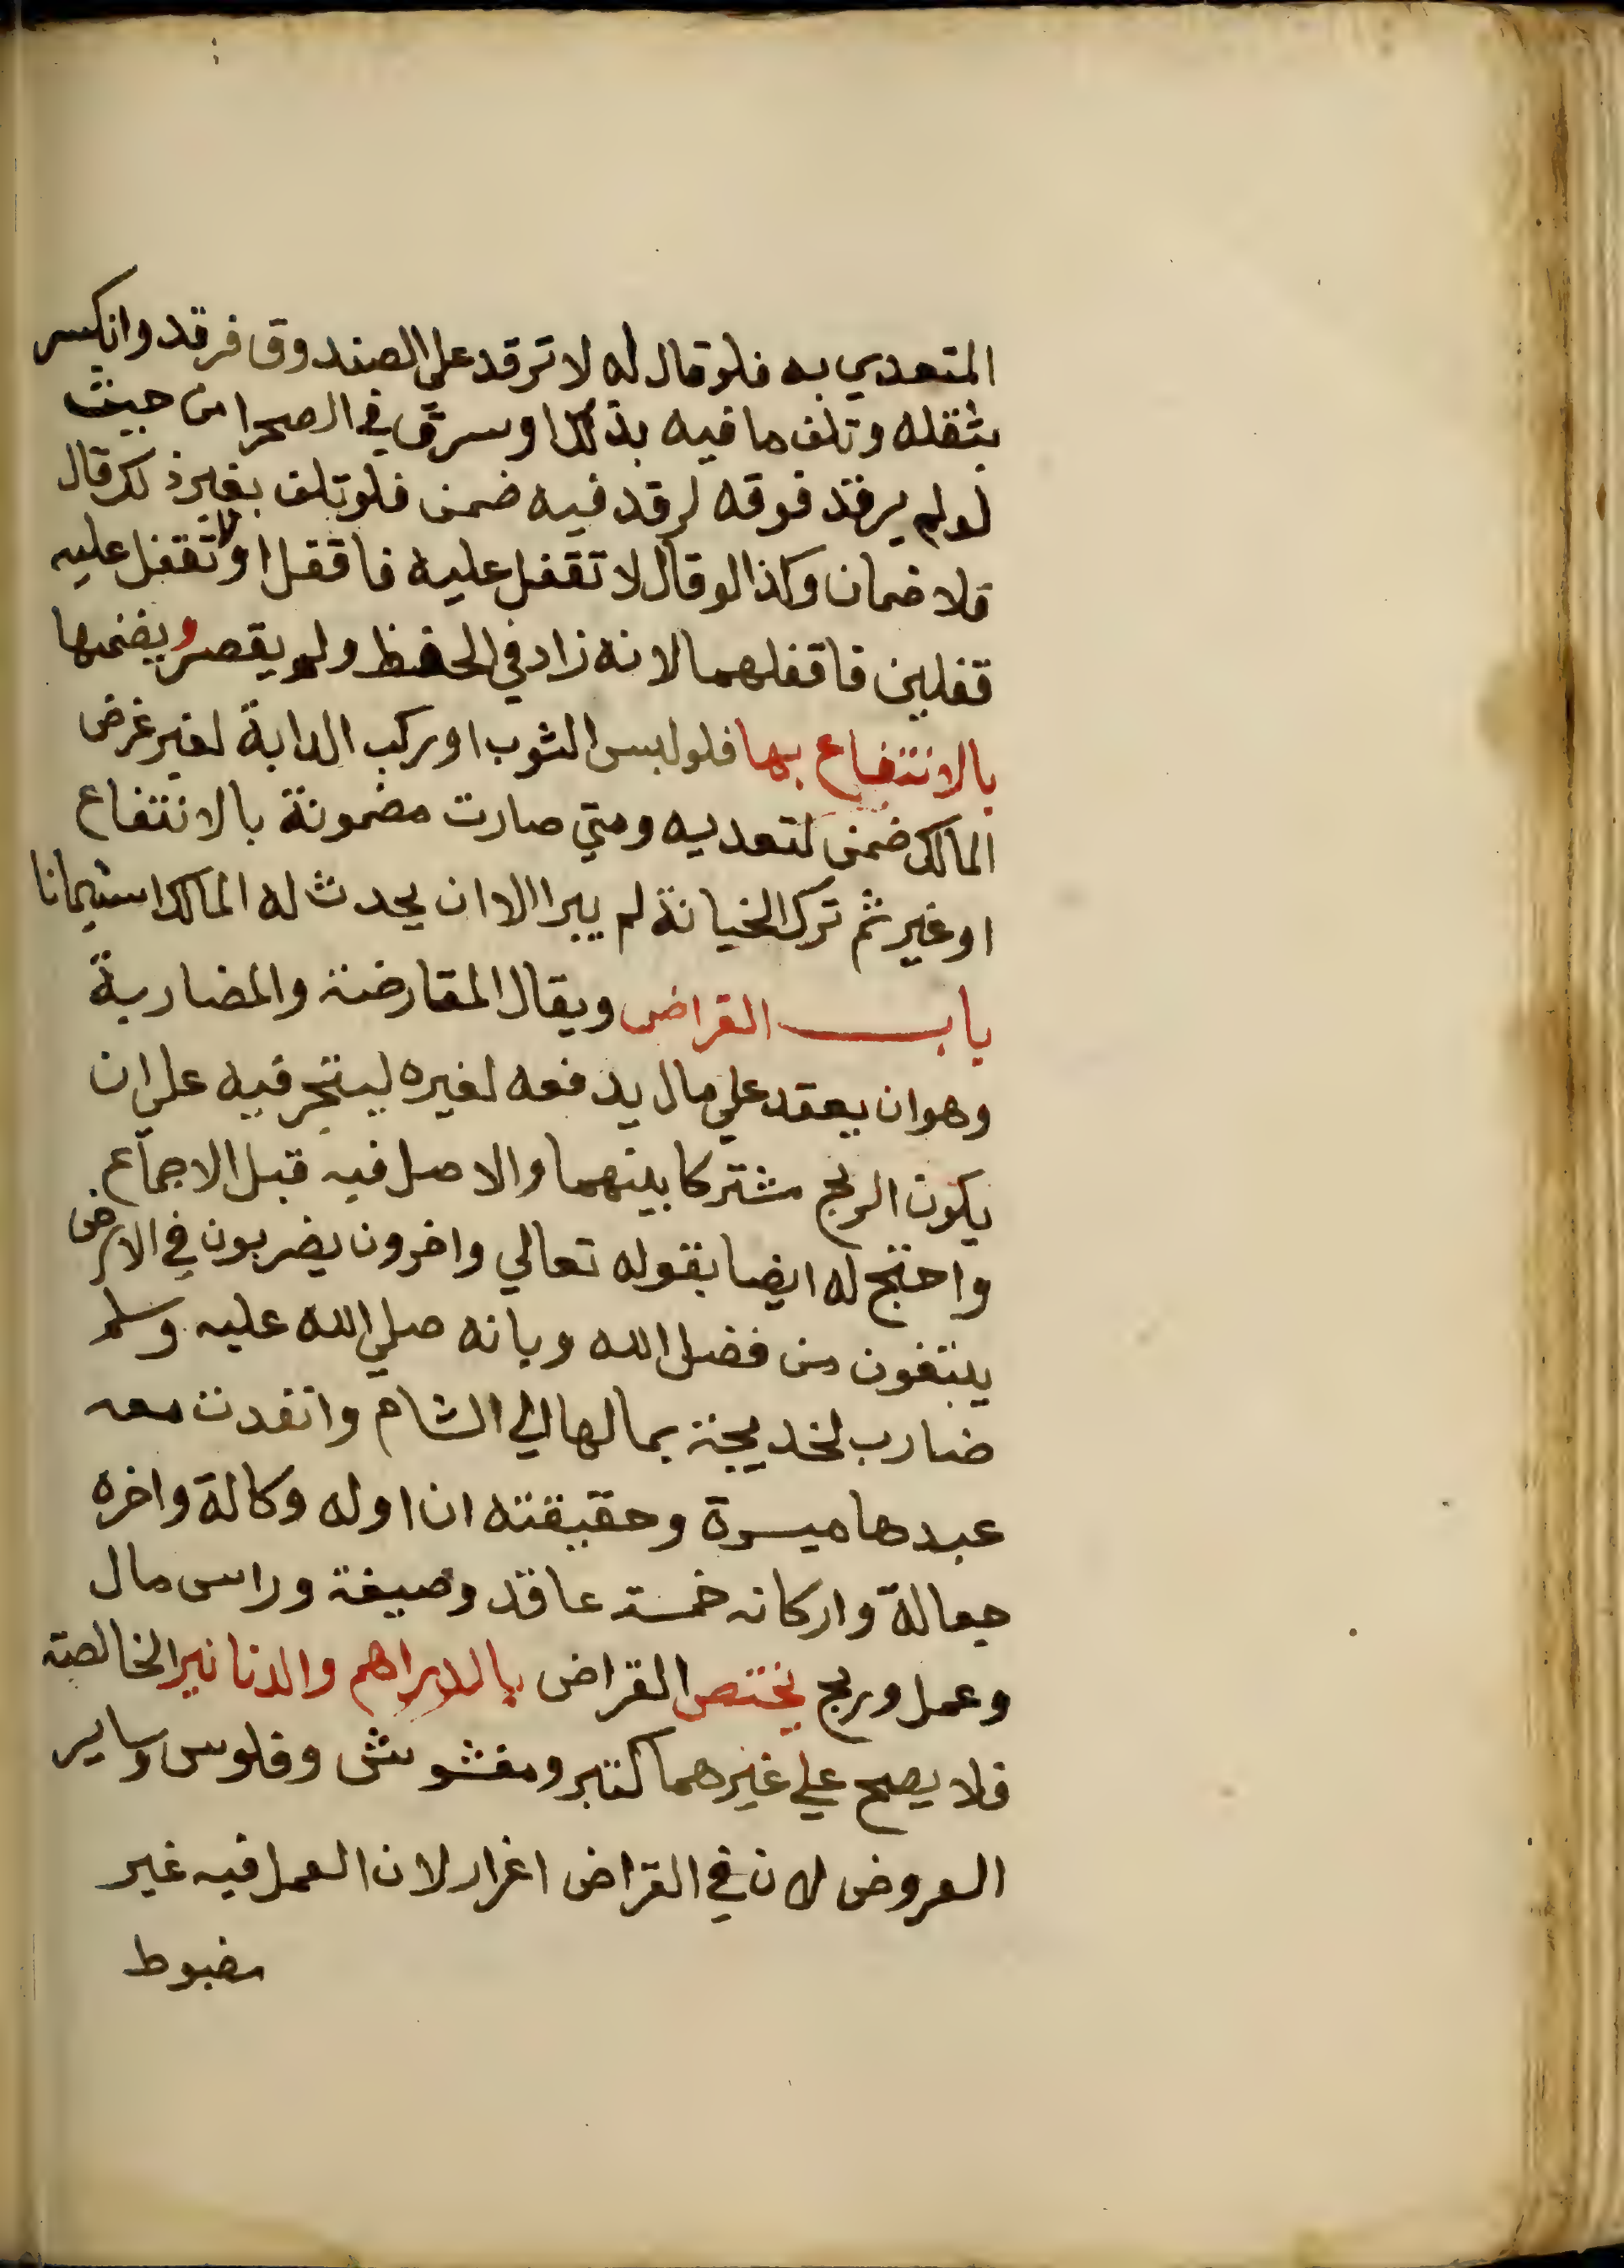 المتعدي به فلو قال له لا ترقد علي الصندوق فرقد وانكسر
بثقله وتلف ما فيه بذلك او سرق في الصحرا من حيث
لو لم يرقد فوقه لرقد فيه ضمن فلو تلف بغير ذلك قال
فلا ضمان وكذا لو قال لا تقفل عليه فاقفل او لا تقفل عليه
قفلين فاقفلهما لانه زاد في الحفظ ولم يقصر ويضمنها
بالانتفاع بها فلو لبس الثوب او ركب الدابة لغير غرض
المالك ضمن لتعديه ومتي صارت مضمونة بالانتفاع
او غير ثم ترك الخيانة لم يبرا الا ان يحدث له المالك استيمانا
باب القراض ويقال المقارضة والمضاربة
وهو ان يعقد علي مال يدفعه لغيره ليتجر فيه علي ان
يكون الربح مشتركا بينهما والاصل فيه قبل الاجماع
واحتج له ايضا بقوله تعالي واخرون يضربون في الارض
يبتغون من فضل الله وبانه صلي الله عليه وسلم
ضارب لخديجة بمالها الي الشام وانفدت معه
عبدها ميسرة وحقيقته ان اوله وكالة واخره
جعالة واركانه خمسة عاقد وصيغة وراس مال
وعمل وربح يختص القراض بالدراهم والدنانير الخالصة
فلا يصح علي غيرهما كتبر ومغشوش وفلوس وساير
العروض لان في القراض اغرار لان العمل فيه غير
مضبوط